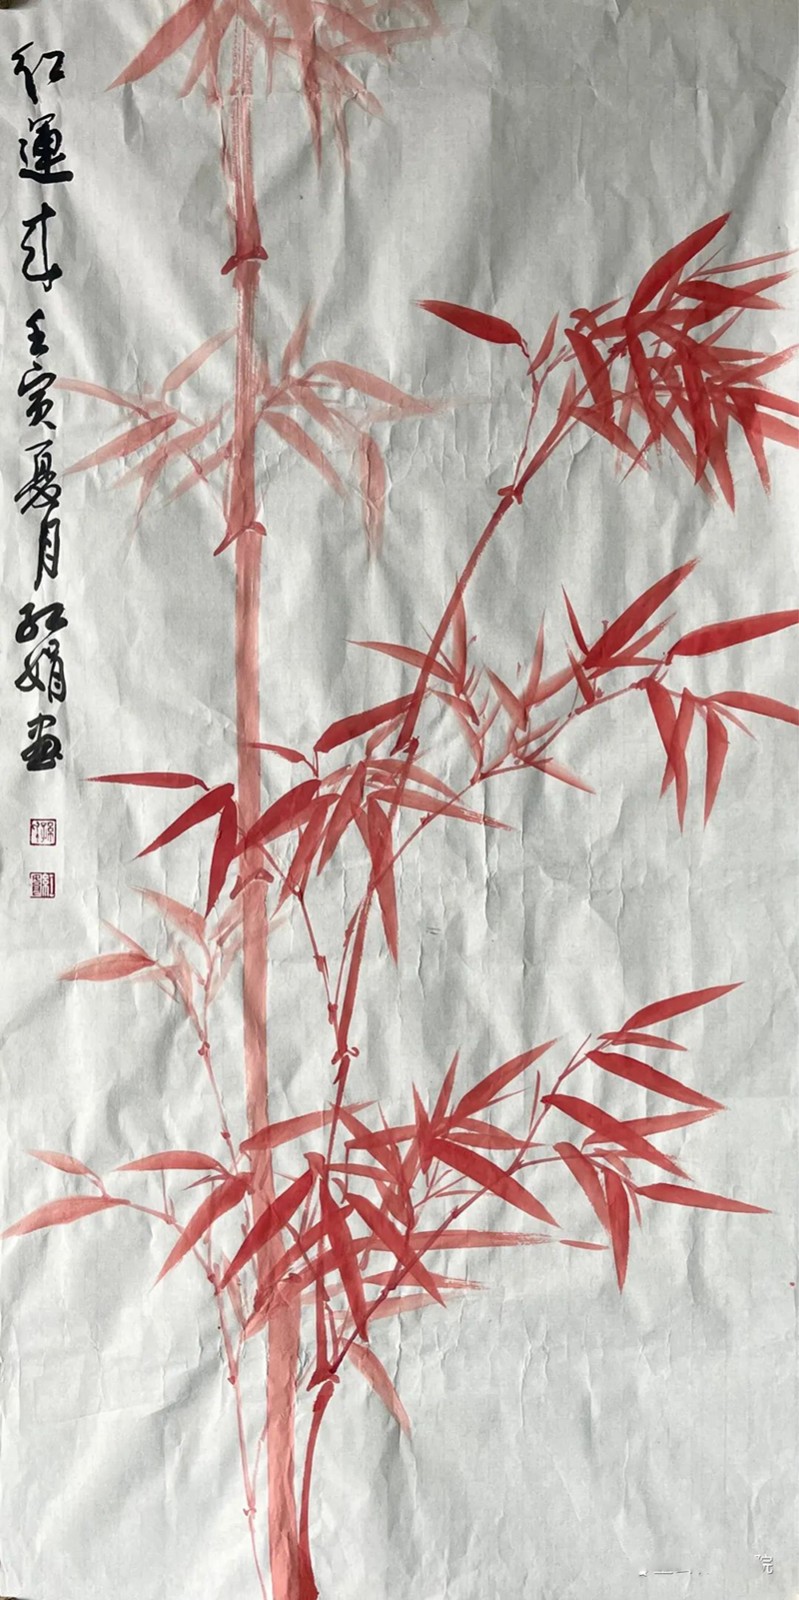 红運来壬寅夏月红娟画